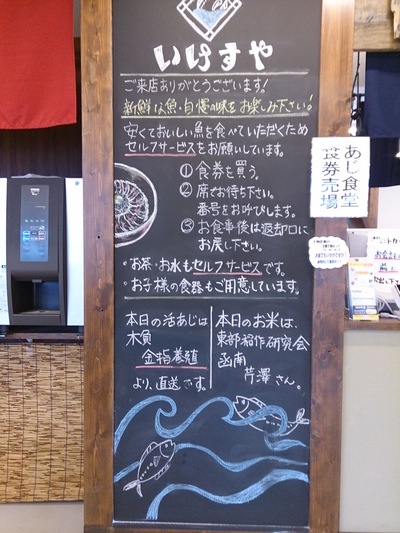 いけすや
ご来店ありがとうございます!
新鮮な魚・自慢の味をお楽しみ下さい!
安くておいしい魚を食べていただくため
セルフサービスをお願いしています。
① 食券を買う。
② 席でお待ち下さい。
番号をお呼びします。
③ お食事後は返却口に
お戻し下さい。
・お茶・お水もセルフサービスです。
・お子様の食器もご用意しています。
本日の活あじは
木負
金指養殖
より、直送です。
本日のお米は、
東部稲作研究会
函南
芹澤さん。
あじ食堂
食券売場